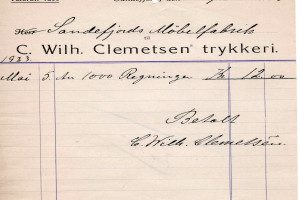 Sandefjords Möbelfabrik
C. Wilh. Clemetsen trykkeri.
1923
Mai 5. An 1000 Regninger Kr 12 00
Betalt
C. Wilh. Clemetsen